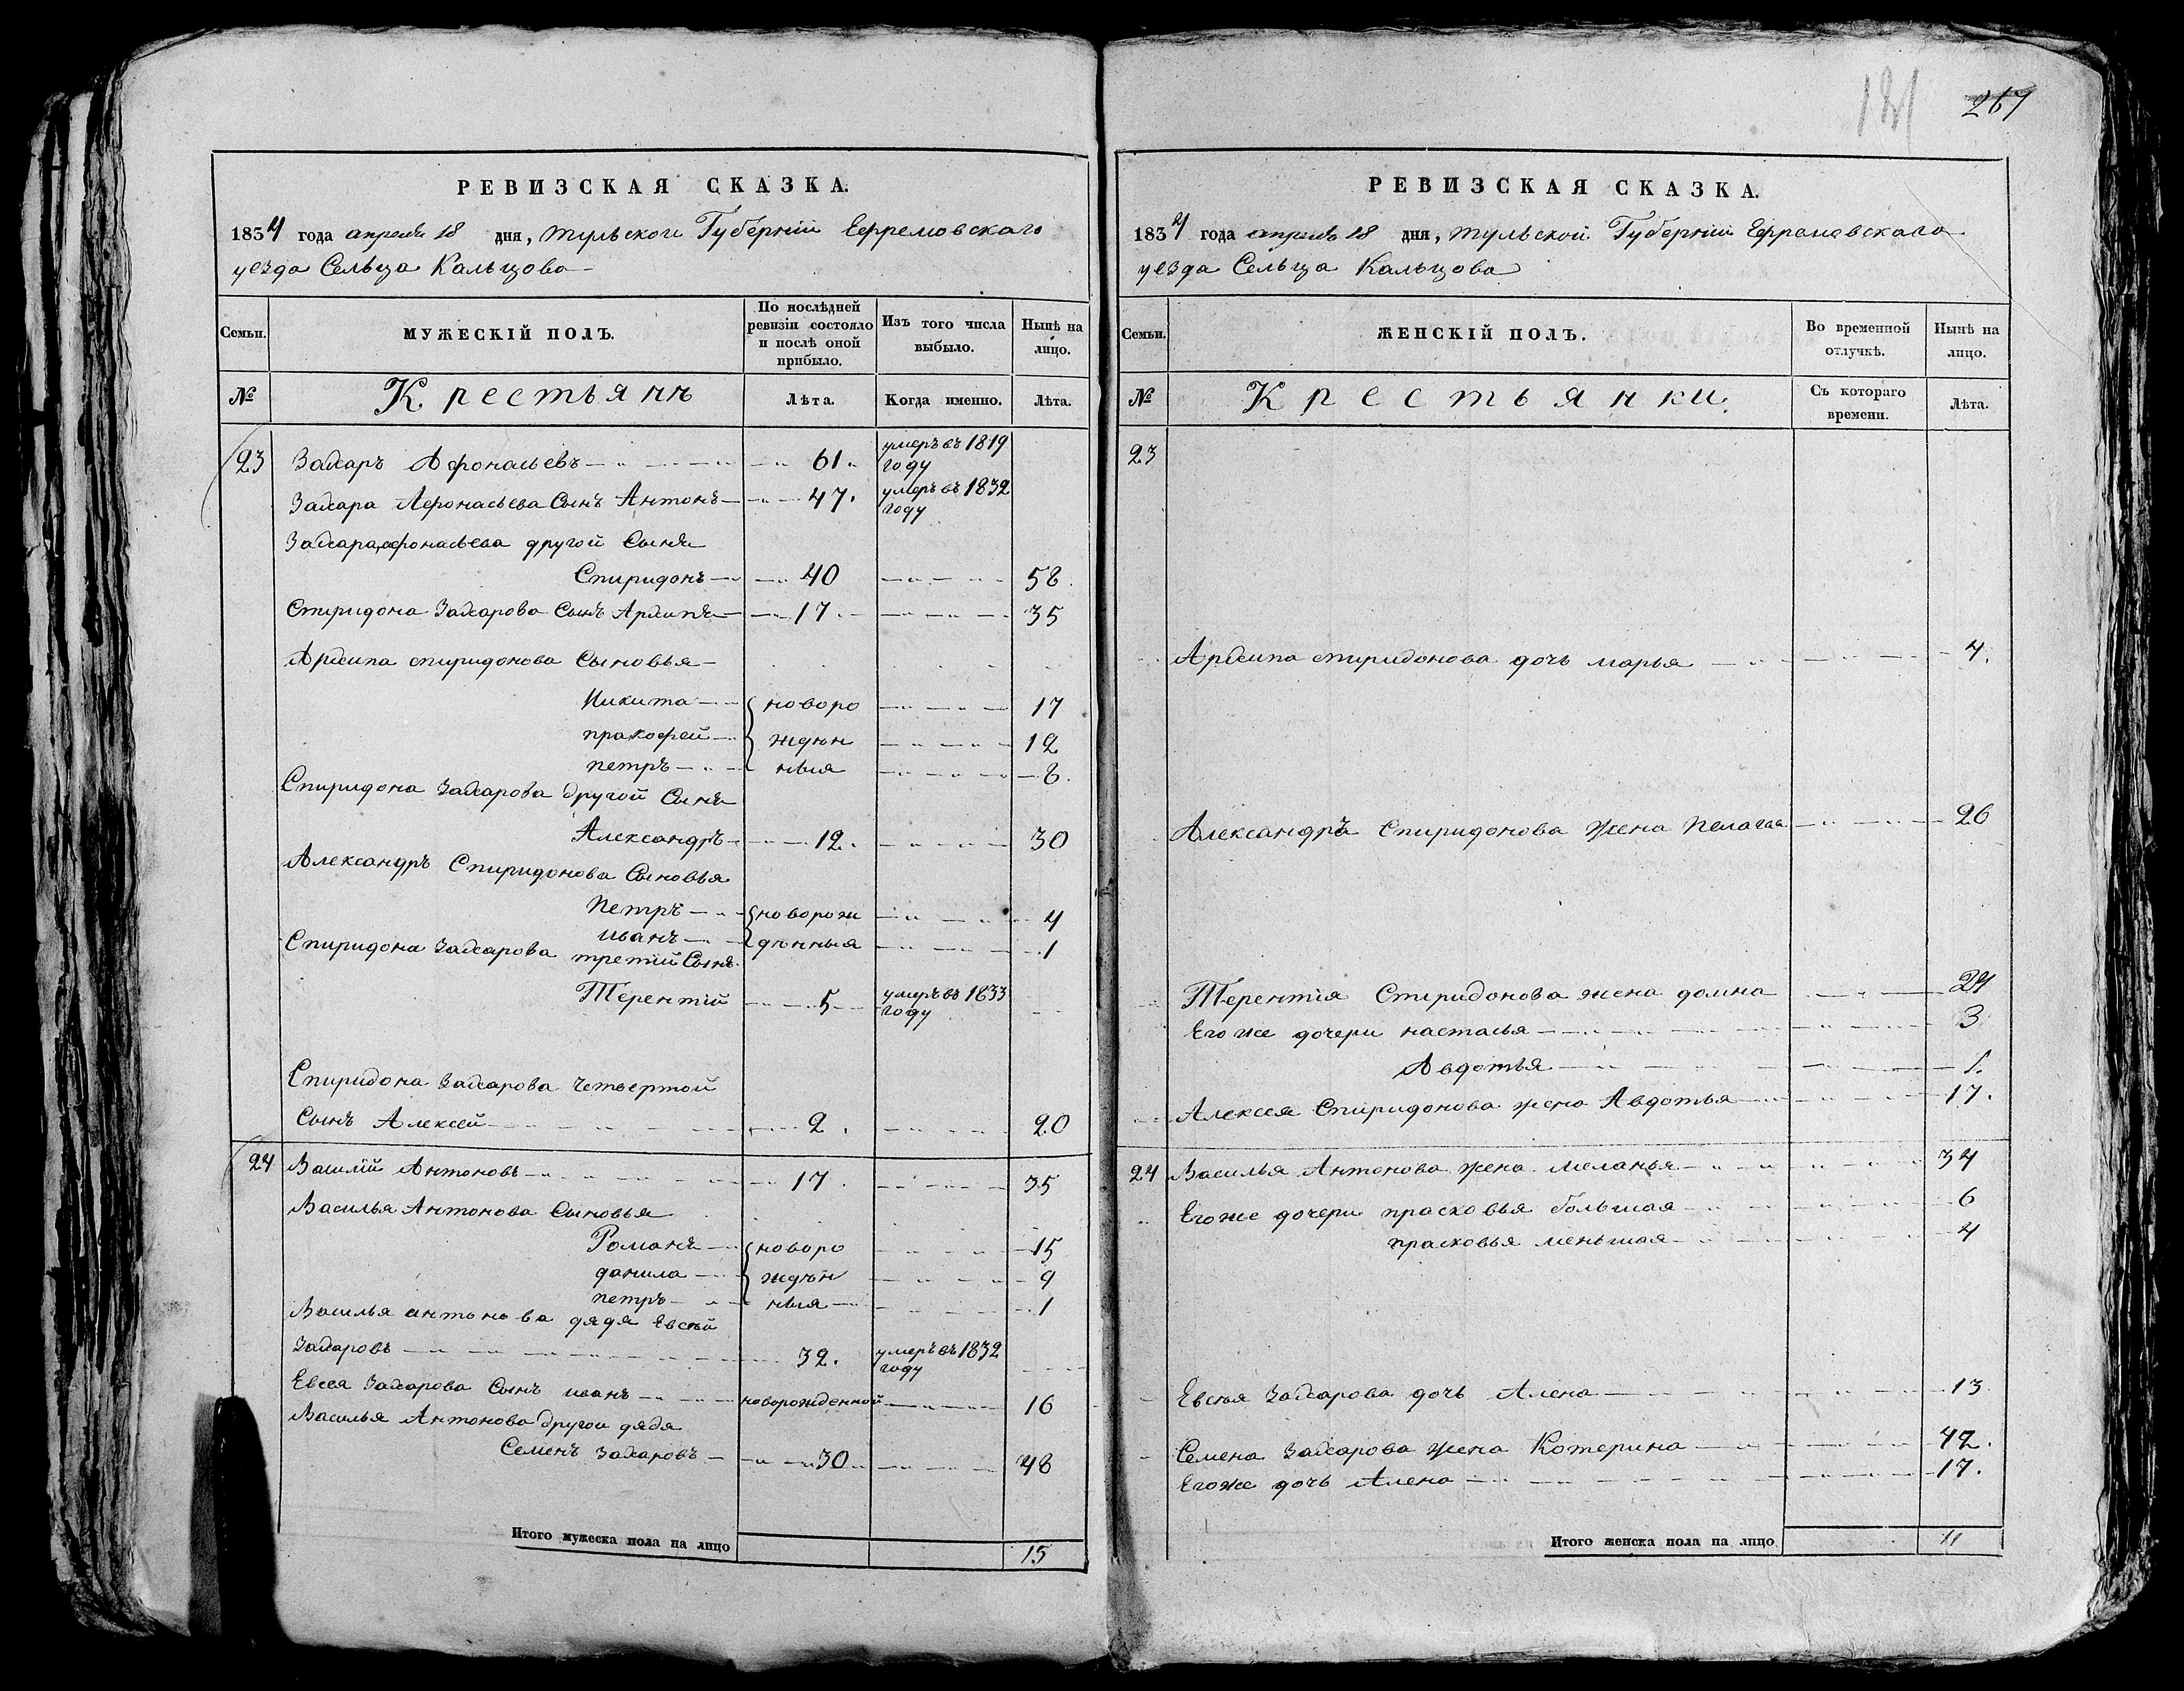 РЕВИЗСКАЯ СКАЗКА.
1834 года апреля 18 дня, тульской Губерніи Ефремовскаго
уезда Сельца Кальцова
Семьи. МУЖЕСКІЙ ПОЛЪ. По послѣдней ревизіи состояло и послѣ оной прибыло. Изъ того числа выбыло. Нынѣ на лицо.
№ Крестьянъ Лѣта. Когда именно. Лѣта.
23 Захаръ Афонасьевъ 61. умеръ въ 1819 году
Захара Афонасьева Сынъ Антонъ 47. умеръ въ 1832 году
Захара афонасьева другой Сынъ
Спиридонъ 40 58.
Спиридона Захарова Сынъ Архипъ 17. 35
Архипа спиридонова Сыновья
Никита новоро 17
пракофей жден 12
петръ ныя 8.
Спиридона Захарова другой Сынъ
Александръ 12. 30
Александръ Спиридонова Сыновья
Петръ новорож 4
иванъ денныя 1
Спиридона Захарова третій Сынъ
Терентій 5 умеръ въ 1833 году
Спиридона Захарова четвертой
Сынъ Алексей 2. 20
24 Василій Антоновъ 17. 35
Василья Антонова Сыновья
Романъ новоро 15
данила жден 9
петръ ныя 1
Василья антонова дядя Евсей
Захаровъ 32. умеръ въ 1832 году
Евсея Захарова Сынъ иванъ новорожденной 16
Василья Антонова другой дядя
Семенъ Захаровъ 30 48
Итого мужеска пола на лицо 15
267
РЕВИЗСКАЯ СКАЗКА.
1834 года апреля 18 дня, тульской Губерніи Ефремовскаго
уезда Сельца Кальцова
Семьи. ЖЕНСКІЙ ПОЛЪ. Во временной отлучкѣ. Нынѣ на лицо.
№ Крестьянки. Съ котораго времени. Лѣта.
23
Архипа спиридонова дочь марья 4.
Александра Спиридонова жена Пелагая 26
Терентія Спиридонова жена домна 24
Его же дочери настасья 3
Авдотья 1.
Алексея Спиридонова жена Авдотья 17.
24 Василья Антонова жена меланья 34
Его же дочери прасковья большая 6
прасковья меньшая 4
Евсея Захарова дочь Алена 13
Семена Захарова жена Котерина 42.
Его же дочь Алена 17.
Итого женска пола на лицо 11